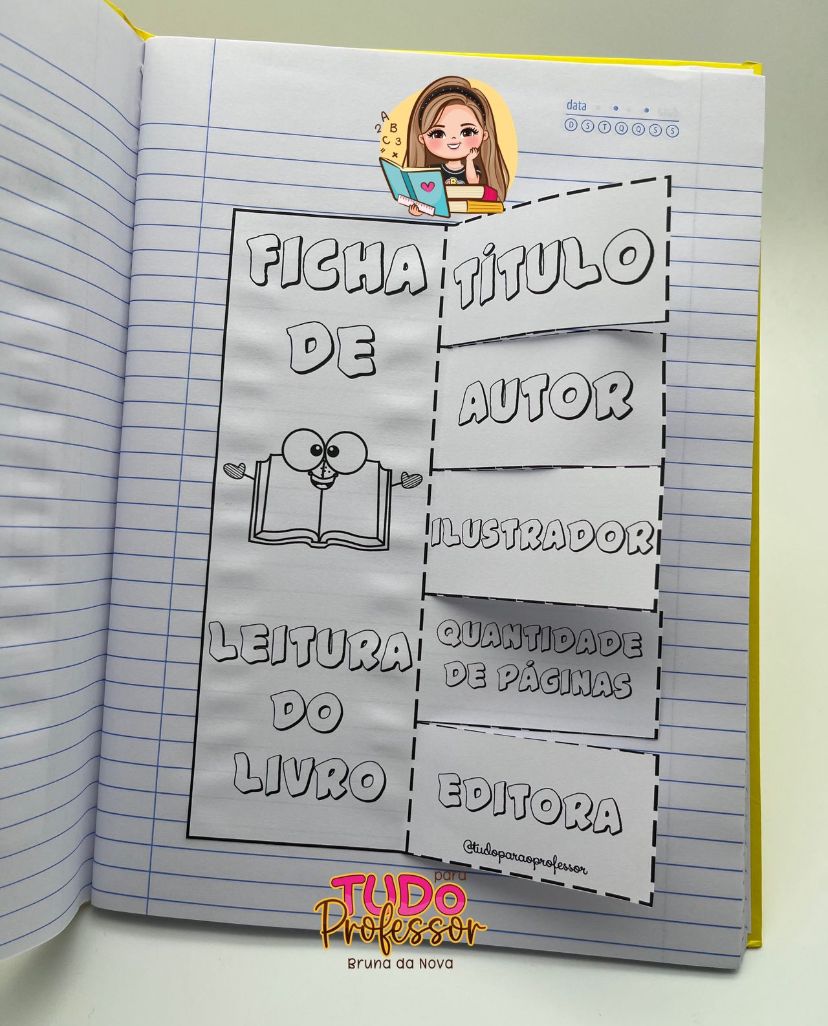 data
D S T Q Q S S
A
2 B
C 3
= x
FICHA
DE
LEITURA
DO
LIVRO
TÍTULO
AUTOR
ILUSTRADOR
QUANTIDADE
DE PÁGINAS
EDITORA
@tudoparaoprofessor
para
TUDO
Professor
Bruna da Nova